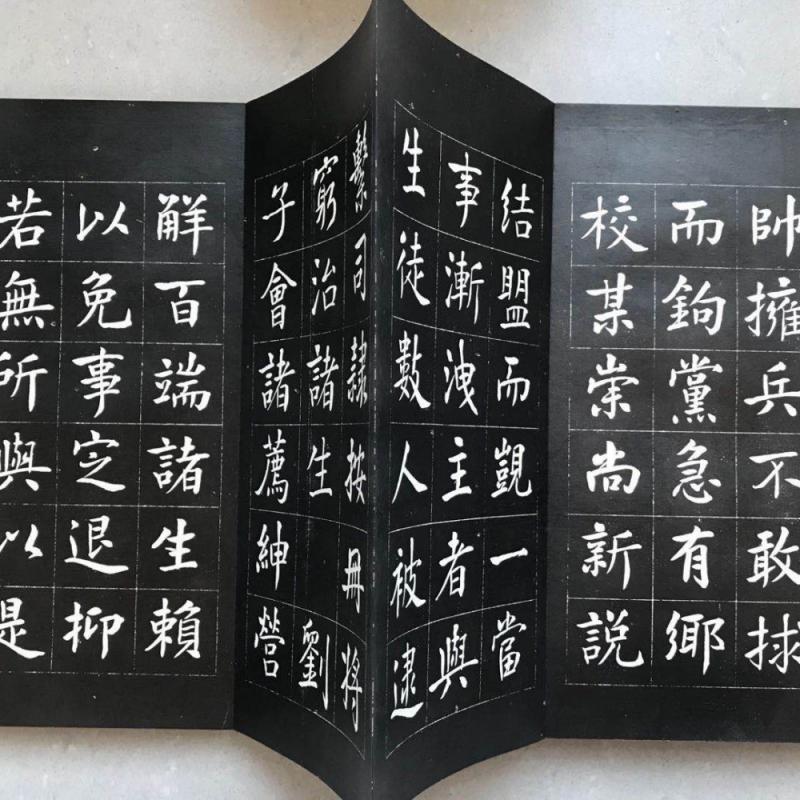 帥擁兵不敢捄
而鉤黨急有鄉
校某崇尚新說
結盟而覬一當
事漸洩主者與
生徒數人被逮
繫司隸按冊將
窮治諸生 劉
子會諸薦紳營
觧百端諸生賴
以免事定退抑
若無所與以是